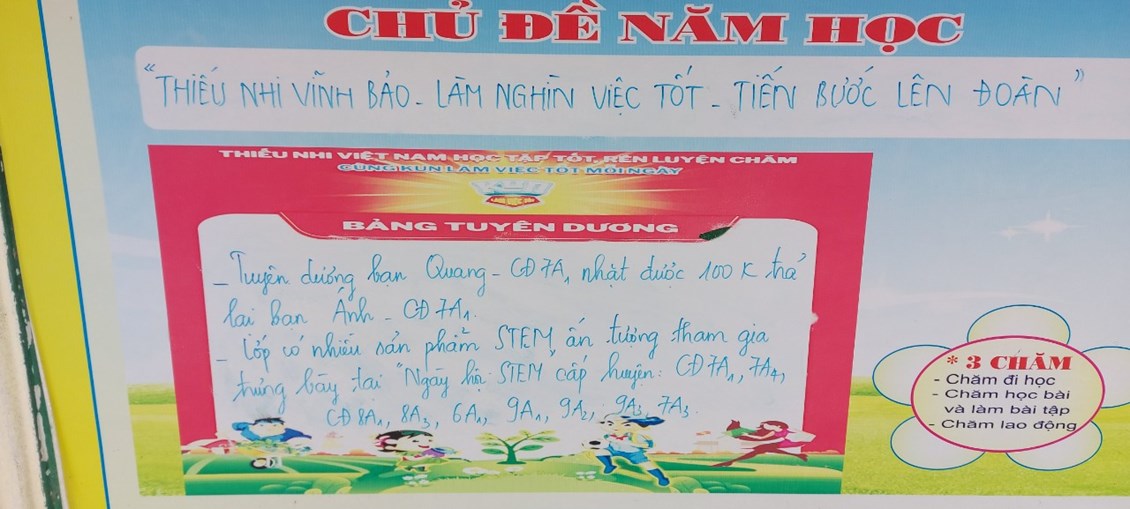 CHỦ ĐỀ NĂM HỌC
"THIẾU NHI VĨNH BẢO - LÀM NGHÌN VIỆC TỐT - TIẾN BƯỚC LÊN ĐOÀN"
THIẾU NHI VIỆT NAM HỌC TẬP TỐT, RÈN LUYỆN CHĂM
CÙNG KUN LÀM VIỆC TỐT MỖI NGÀY
LÀM VIỆC TỐT
BẢNG TUYÊN DƯƠNG
- Tuyên dương bạn Quang - CĐ 7A1 nhặt được 100 K trả
lại bạn Ánh - CĐ 7A1.
- Lớp có nhiều sản phẩm STEM ấn tượng tham gia
trưng bày tại "Ngày hội STEM cấp huyện: CĐ 7A1, 7A4,
CĐ 8A1, 8A3, 6A1, 9A1, 9A2, 9A3, 7A3.
* 3 CHĂM
- Chăm đi học
- Chăm học bài
và làm bài tập
- Chăm lao động